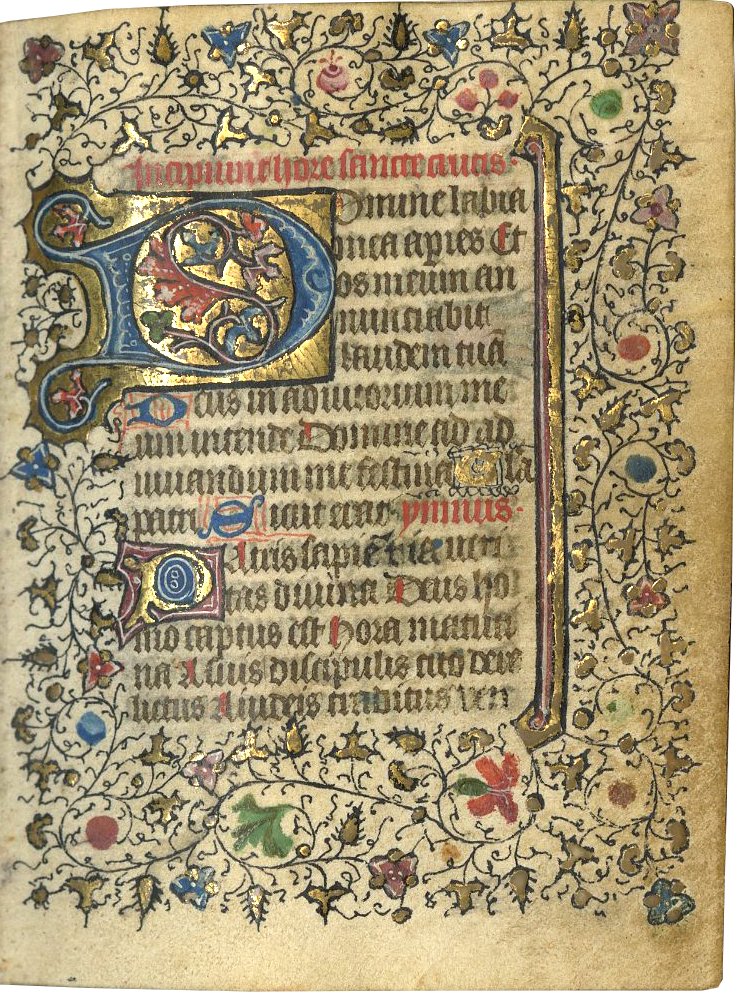 Incipiunt hore sancte crucis.
Domine labia
mea apries Et
os meum an
nunciabit
laudem tuā
Deus in adiutorium me
um intende Domine ad ad
iuuandum me festina Gla
patri Sicut erat ymnus.
Patris sapiētia ueri
tas diuina Deus ho
mo captus est Hora matuti
na A suis discipulis cito dere
lictus A iudeis traditus ven